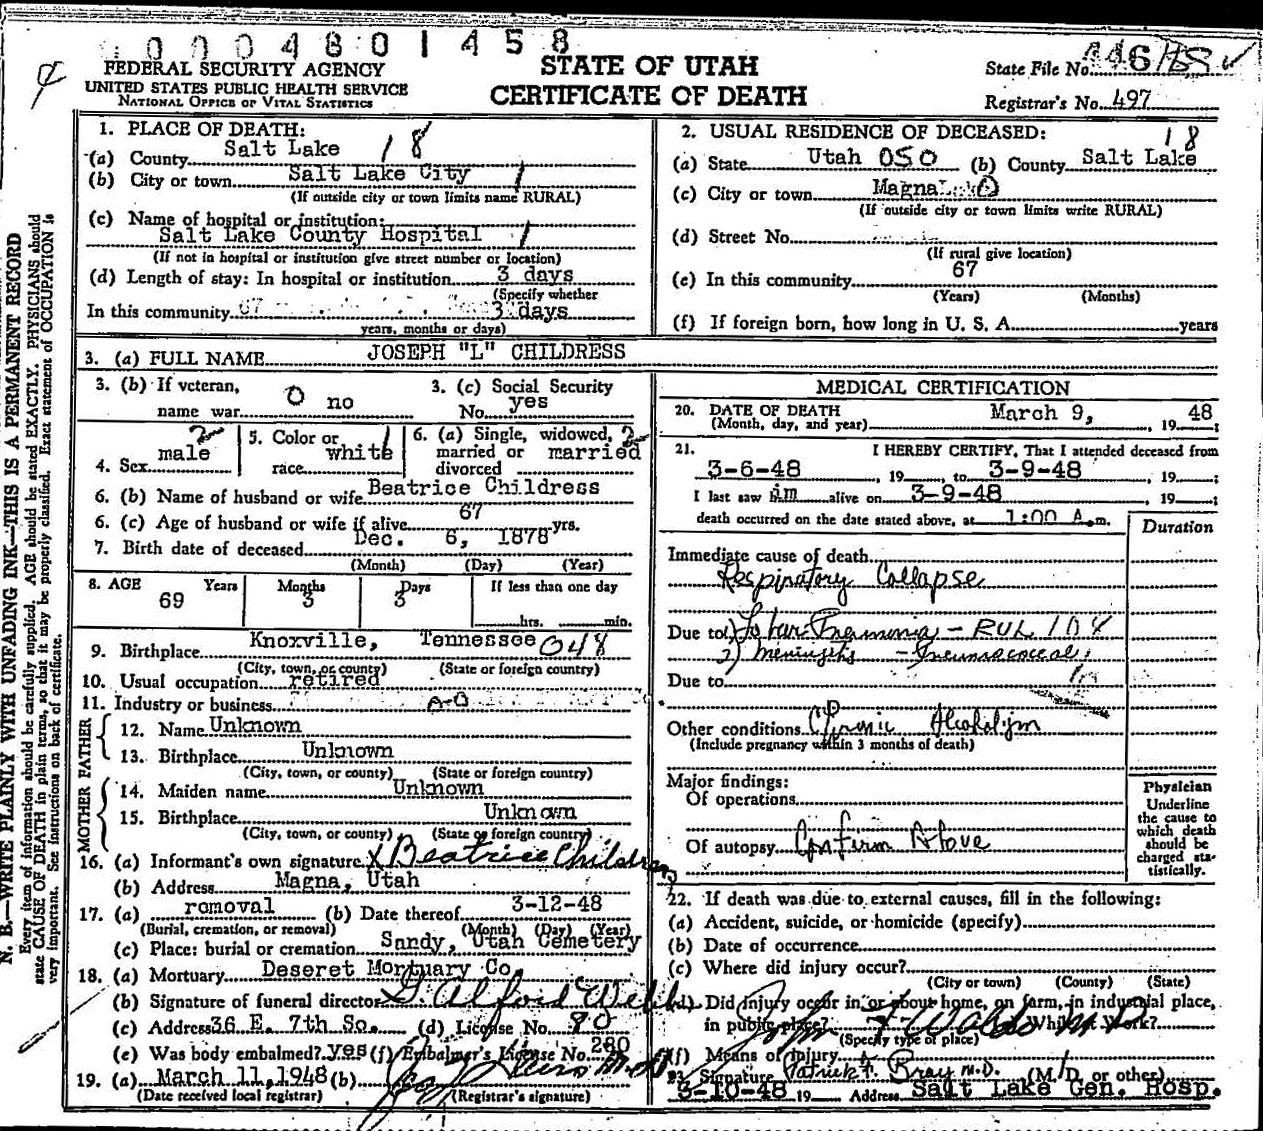 0004801458
FEDERAL SECURITY AGENCY
UNITED STATES PUBLIC HEALTH SERVICE
NATIONAL OFFICE OF VITAL STATISTICS
STATE OF UTAH
CERTIFICATE OF DEATH
State File No.
Registrar's No. 497
N. B.—WRITE PLAINLY WITH UNFADING INK—THIS IS A PERMANENT RECORD
Every item of information should be carefully supplied. AGE should be stated EXACTLY. PHYSICIANS should
state CAUSE OF DEATH in plain terms, so that it may be properly classified. Exact statement of OCCUPATION is
very important. See instructions on back of certificate.
1. PLACE OF DEATH:
(a) County Salt Lake 18
(b) City or town Salt Lake City 1
(If outside city or town limits name RURAL)
(c) Name of hospital or institution:
Salt Lake County Hospital 1
(If not in hospital or institution give street number or location)
(d) Length of stay: In hospital or institution 3 days
(Specify whether
In this community 67 3 days
years, months or days)
2. USUAL RESIDENCE OF DECEASED: 18
(a) State Utah 050 (b) County Salt Lake
(c) City or town Magna 0
(If outside city or town limits write RURAL)
(d) Street No.
(If rural give location)
(e) In this community 67
(Years) (Months)
(f) If foreign born, how long in U. S. A. years
3. (a) FULL NAME JOSEPH "L" CHILDRESS
3. (b) If veteran, name war 0 no
3. (c) Social Security No. yes
4. Sex male 2
5. Color or race white 1
6. (a) Single, widowed, married or divorced married 2
6. (b) Name of husband or wife Beatrice Childress
6. (c) Age of husband or wife if alive 67 yrs.
7. Birth date of deceased Dec. 6, 1878
(Month) (Day) (Year)
8. AGE Years Months Days If less than one day
69 3 3 hrs. min.
9. Birthplace Knoxville, Tennessee 048
(City, town, or county) (State or foreign country)
10. Usual occupation retired
11. Industry or business A-0
FATHER
12. Name Unknown
13. Birthplace Unknown
(City, town, or county) (State or foreign country)
MOTHER
14. Maiden name Unknown
15. Birthplace Unknown
(City, town, or county) (State or foreign country)
16. (a) Informant's own signature X Beatrice Childress
(b) Address Magna, Utah
17. (a) removal (b) Date thereof 3-12-48
(Burial, cremation, or removal) (Month) (Day) (Year)
(c) Place: burial or cremation Sandy, Utah Cemetery
18. (a) Mortuary Deseret Mortuary Co.
(b) Signature of funeral director G. Alford Webb
(c) Address 36 E. 7th So. (d) License No. 90
(e) Was body embalmed? yes (f) Embalmer's License No. 280
19. (a) March 11, 1948 (b)
(Date received local registrar) (Registrar's signature)
MEDICAL CERTIFICATION
20. DATE OF DEATH March 9, 1948;
(Month, day, and year)
21. I HEREBY CERTIFY, That I attended deceased from
3-6-48, 19 to 3-9-48, 19 ;
I last saw him alive on 3-9-48, 19 ;
death occurred on the date stated above, at 1:00 A.m.
Duration
Immediate cause of death
Respiratory Collapse
Due to 1) Lobar Pneumonia - RUL 108
2) Meningitis - Pneumococcal
Due to
Other conditions Chronic Alcoholism
(Include pregnancy within 3 months of death)
Major findings:
Of operations
Of autopsy Confirm Above
Physician
Underline
the cause to
which death
should be
charged sta-
tistically.
22. If death was due to external causes, fill in the following:
(a) Accident, suicide, or homicide (specify)
(b) Date of occurrence
(c) Where did injury occur?
(City or town) (County) (State)
(d) Did injury occur in or about home, on farm, in industrial place,
in public place? While at Work?
(Specify type of place)
John F Waldo M D
(f) Means of injury
23. Signature Patrick A. Bray M.D. (M. D. or other)
3-10-48 19 Address Salt Lake Gen. Hosp.